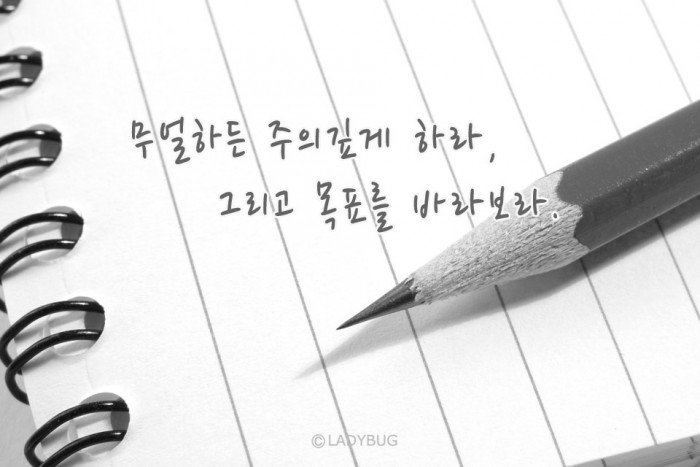 무얼하든 주의깊게 하라,
그리고 목표를 바라보라.
©LADYBUG